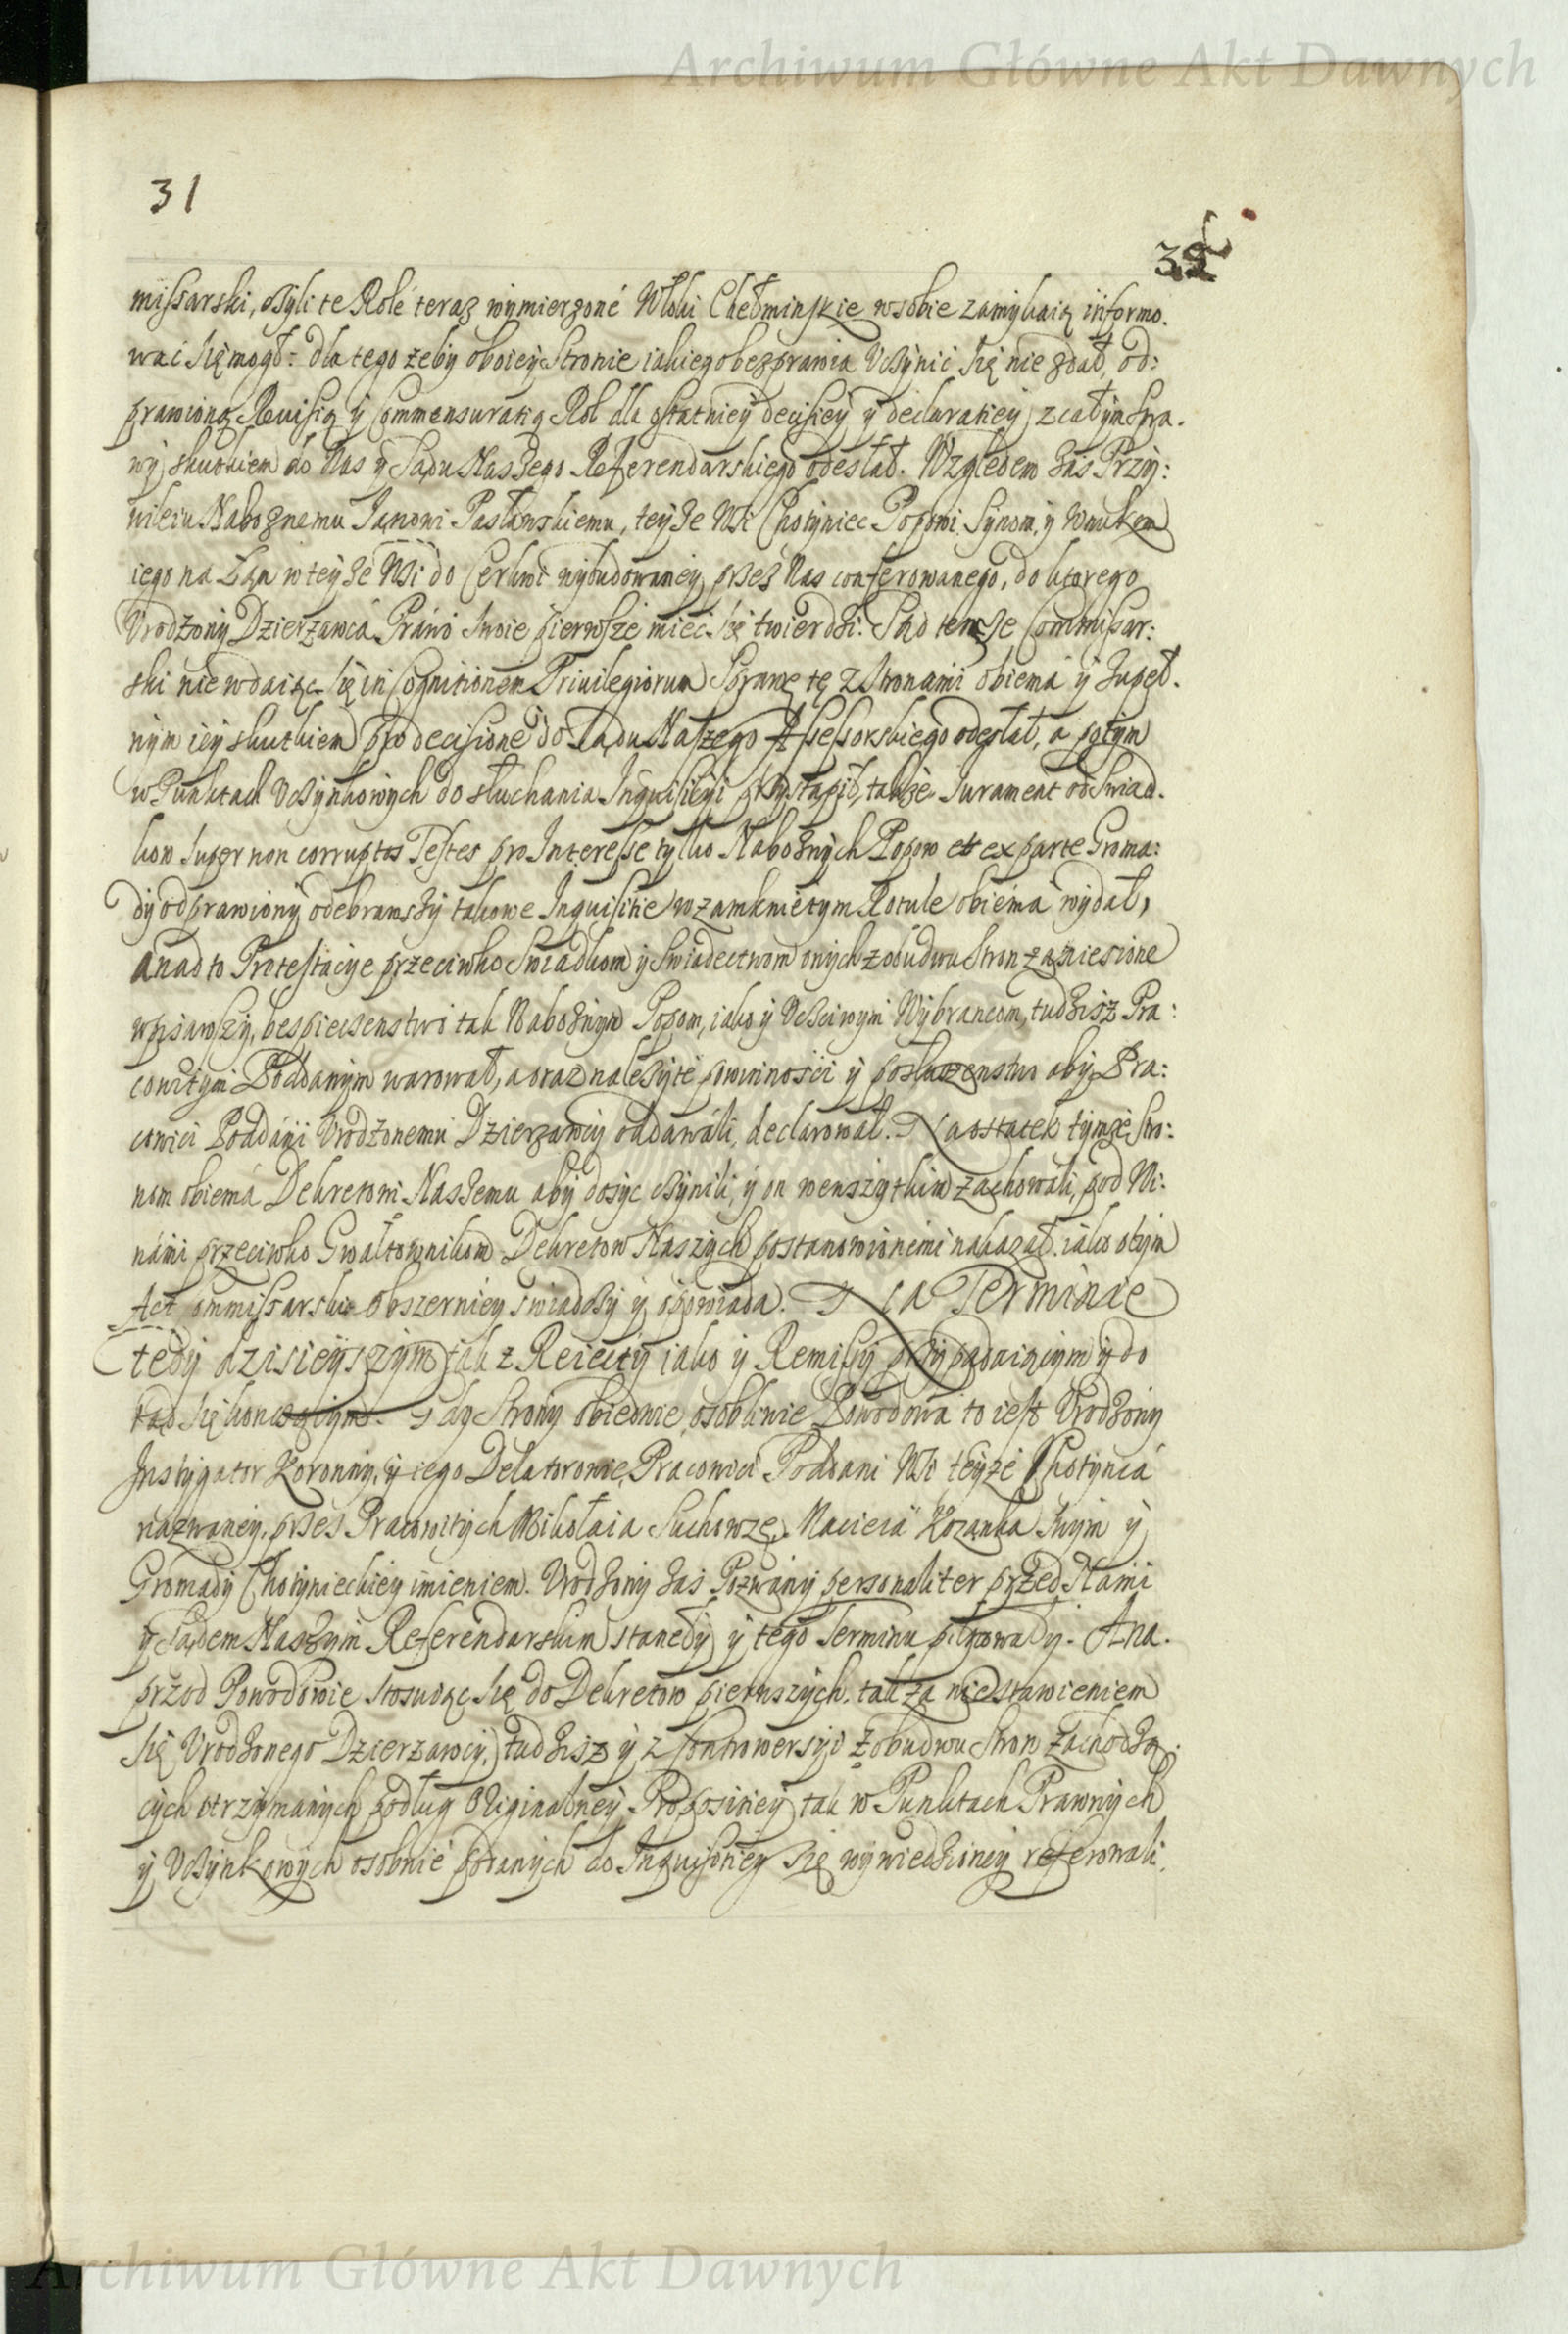 Archiwum Główne Akt Dawnych
31
32
missarski, ieżyli te Rolé teraz wymierzoné Włoki Chełminskie wsobie zamykaią informo.
wać się mogł: dla tego żeby oboiey Stronie iakiego bezprawia Uczynić się nie zdał, od:
prawioną Rewisią y Commensuratią Rol dla ostatniey decisiey y declaratiey z całym Spra.
wy skutkiem do Nas y Sądu Naszego Referendarskiego odesłał. Względem zas Przy:
wileiu Nabożnemu Janowi Pasławskiemu, teyże Wsi Chotyniec Popowi Synom, y Wnukom
iego na Łan w teyże Wsi do Cerkwi wybudowaney, przez Nas conferowanego, do ktorego
Urodzony Dzierzawca Prawo swoie pierwsze mieć się twierdzi. Sąd tenże Commissar:
ski nie wdaiąc się in Cognitionem Priuilegiorum Sprawę tę z Stronami obiema y zupeł.
nym iey skutkiem pro decisione do Sądu Naszego Assessorskiego odesłał, a potym
w Punktach Uczynkowych do słuchania Inquisicyi przystąpił, także Jurament od Swiad.
kow super non corruptos Testes pro Interesse tylko Nabożnych Popow et ex parte Groma:
dy odprawiony odebrawszy takowe Inquisitie w zamknietym Rotule obiema wydał,
a nad to Protestacye przeciwko Swiadkom y Swiadectwom onych z obudwu Stron zaniesione
wpisawszy, bespieczenstwo tak Nabożnym Popom, iako y Uczciwym Wybrancom, tudzisz Pra:
cowitym Poddanym warował, a oraz należyte powinnosci y posłuszenstwo aby Pra:
cowici Poddani Urodzonemu Dzierzawcy oddawali, declarował. Naostatek tymże Stro:
nom obiema Dekretowi Naszemu aby dosyc czynili, y on we wszytkim zachowali, pod Wi:
nami przeciwko Gwałtownikom Dekretow Naszych postanowionemi nakazał. iako o tym
Act Commissarski obszerniey swiadczy y opowiada. Na Terminie
tedy dzisieyszym tak z Reiecty iako y Remissy przypadaiącym y do
tąd się kontynuiącym. Gdy Strony obiedwie, osobliwie Powodowa to iest Urodzony
Instygator Koronny, y iego Delatorowie, Pracowici Poddani Wsi teyże Chotynca
nazwaney, przez Pracowitych Mikołaia Suchowzę, Macieia Kozanka swym y
Gromady Chotynieckiey imieniem. Urodzony zas Pozwany personaliter przed Nami
y Sądem Naszym Referendarskim staneły y tego Terminu pilnowały. A na.
przod Powodowie stosuiąc się do Dekretow pierwszych. tak za niestawieniem
się Urodzonego Dzierzawcy, tudzisz y z Controwersyi z obudwu Stron zachodzą.
cych otrzymanych podług Originalney Propositiey tak w Punktach Prawnych
y Uczynkowych osobnie podanych do Inquisitiey się wywiedzioney referowali,
Archiwum Główne Akt Dawnych